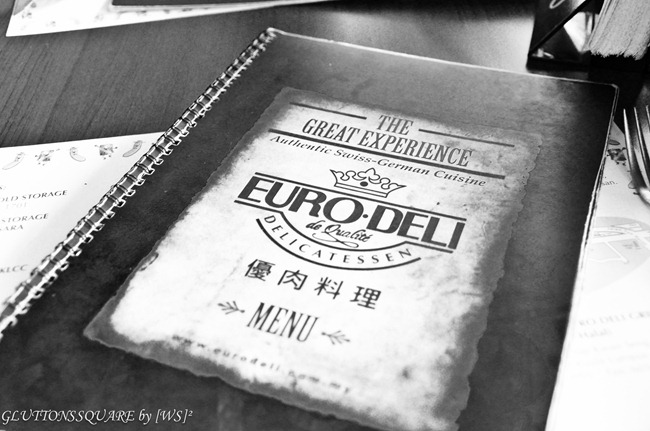 THE
GREAT EXPERIENCE
Authentic Swiss-German Cuisine
EURO·DELI
de Qualité
DELICATESSEN
優肉料理
MENU
www.eurodeli.com.my
OLD STORAGE
STORAGE
ARA
KLCC
GLUTTONSSQUARE by [WS]²